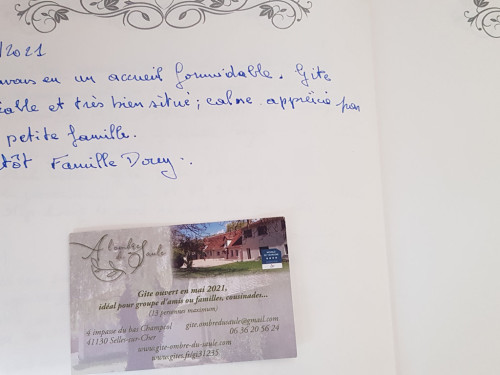 /2021
avons eu un accueil formidable. Gîte
éable et très bien situé ; calme apprécié par
petite famille.
tôt Famille Dorey.
A l'ombre
du Saule
Gîte ouvert en mai 2021,
idéal pour groupe d'amis ou familles, cousinades...
(13 personnes maximum)
4 impasse du bas Champcol
41130 Selles-sur-Cher
gite.ombredusaule@gmail.com
06 36 20 56 24
www.gite-ombre-du-saule.com
www.gites.fr/gi31235